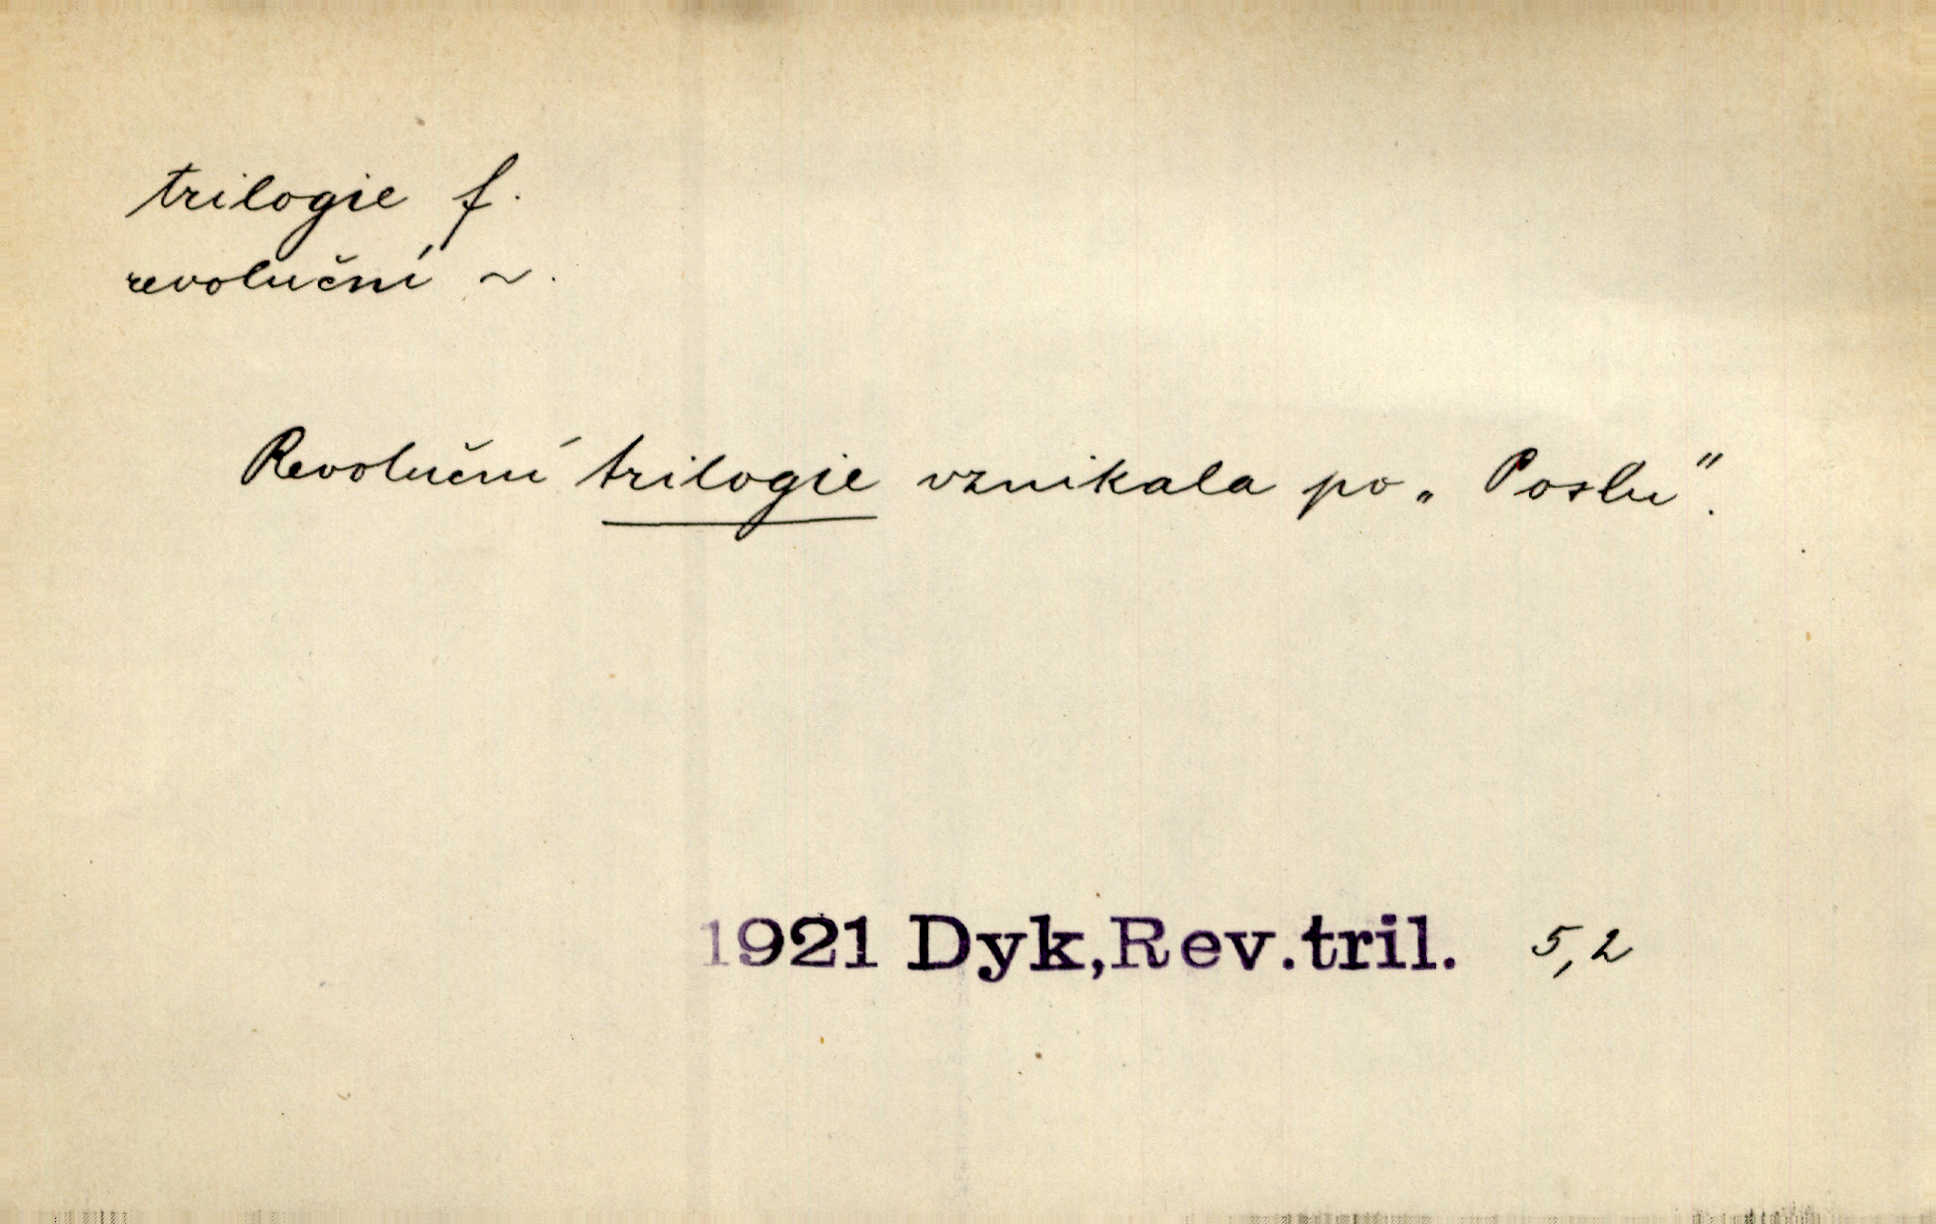 trilogie f.
revoluční ~.
Revoluční trilogie vznikala po „Poslu".
1921 Dyk,Rev.tril. 5,2